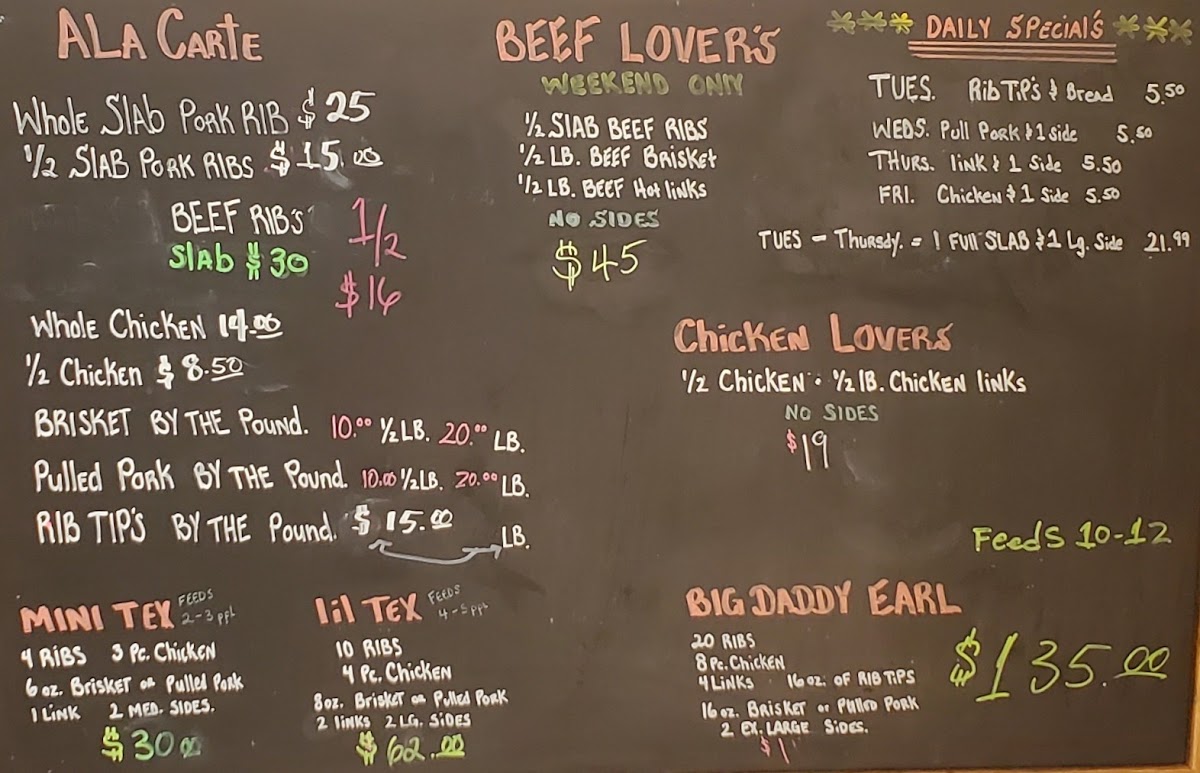 ALA CARTE
Whole Slab PORK RIB $25
1/2 SLAB PORK RIBS $15.00
BEEF RIB'S 1/2
Slab $30 $16
WHOLE CHICKEN 14.00
1/2 Chicken $8.50
BRISKET BY THE Pound. 10.00 1/2 LB. 20.00 LB.
Pulled PORK BY THE Pound. 10.00 1/2 LB. 20.00 LB.
RIB TIP'S BY THE Pound. $15.00 LB.
BEEF LOVER'S
WEEKEND ONLY
1/2 SLAB BEEF RIBS
1/2 LB. BEEF BRISKET
1/2 LB. BEEF Hot links
NO SIDES
$45
DAILY SPECIAL'S
TUES. Rib TIP'S & Bread 5.50
WEDS. Pull Pork & 1 side 5.50
THURS. link & 1 Side 5.50
FRI. Chicken & 1 Side 5.50
TUES - Thursdy. = 1 Full SLAB & 1 Lg. Side 21.99
CHICKEN LOVERS
1/2 CHICKEN · 1/2 lb. CHICKEN links
NO SIDES
$19
MINI TEX FEEDS 2-3 ppl
4 RIBS 3 Pc. Chicken
6 oz. Brisket or Pulled Pork
1 LINK 2 MED. SIDES.
$30.00
lil TEX FEEDS 4-5 ppl
10 RIBS
4 Pc. Chicken
8oz. Brisket or Pulled Pork
2 links 2 LG. SIDES
$62.00
Feeds 10-12
BIG DADDY EARL
20 RIBS
8 Pc. Chicken
4 Links 16 oz. OF RIB TIPS
16 oz. Brisket or Pulled Pork
2 EX. LARGE SIDES.
$1
$135.00